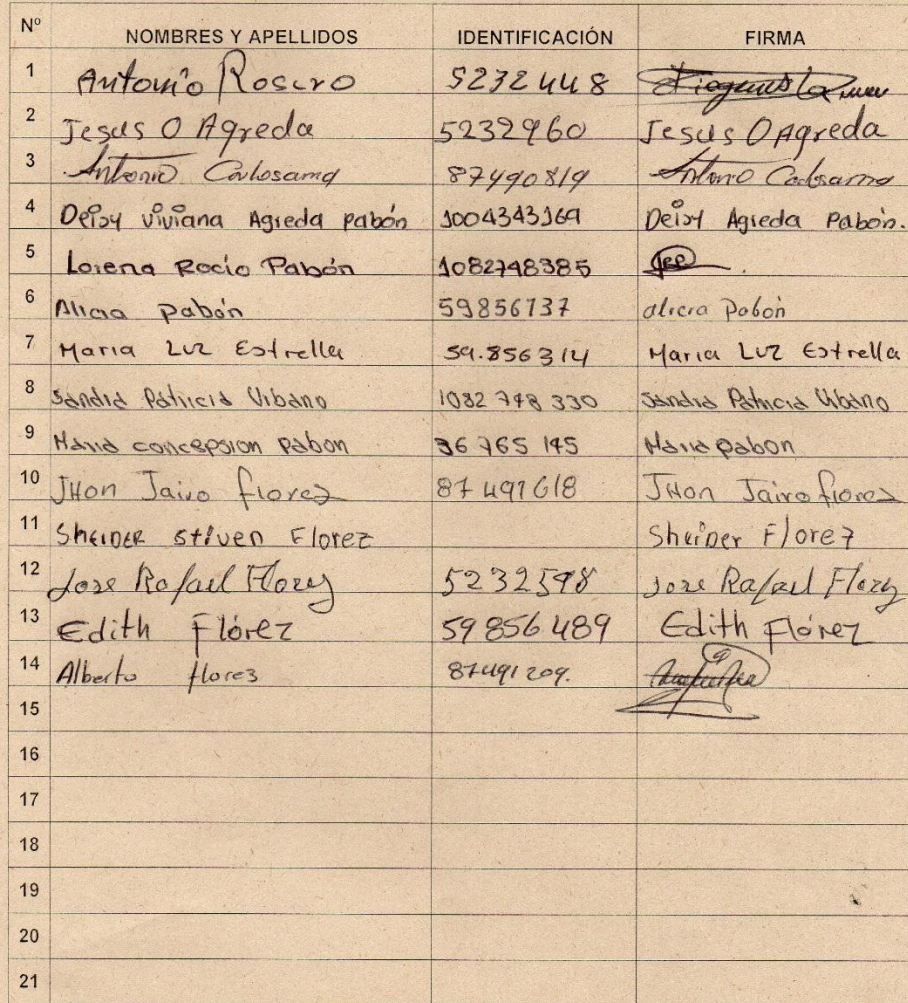 Nº NOMBRES Y APELLIDOS IDENTIFICACIÓN FIRMA
1 Antonio Rosero 5232448
2 Jesus O Agreda 5232960 Jesus O Agreda
3 Antonio Carlosama 87490819 Antonio Carlosama
4 Deisy viviana Agreda pabón 1004343169 Deisy Agreda Pabón.
5 Lorena Rocio Pabón 1082748385
6 Alicia pabón 59856737 alicia Pabón
7 Maria Luz Estrella 59.856314 Maria Luz Estrella
8 Sandra Patricia Urbano 1082 748 330 Sandra Patricia Urbano
9 Maria concepsion Pabon 36 765 145 Maria pabon
10 JHon Jairo florez 87491618 JHon Jairo florez
11 Sheiner stiven Florez Sheiner Florez
12 Jose Rafael Florez 5232598 Jose Rafael Florez
13 Edith Flórez 59856489 Edith Flórez
14 Alberto flores 87491209.
15
16
17
18
19
20
21